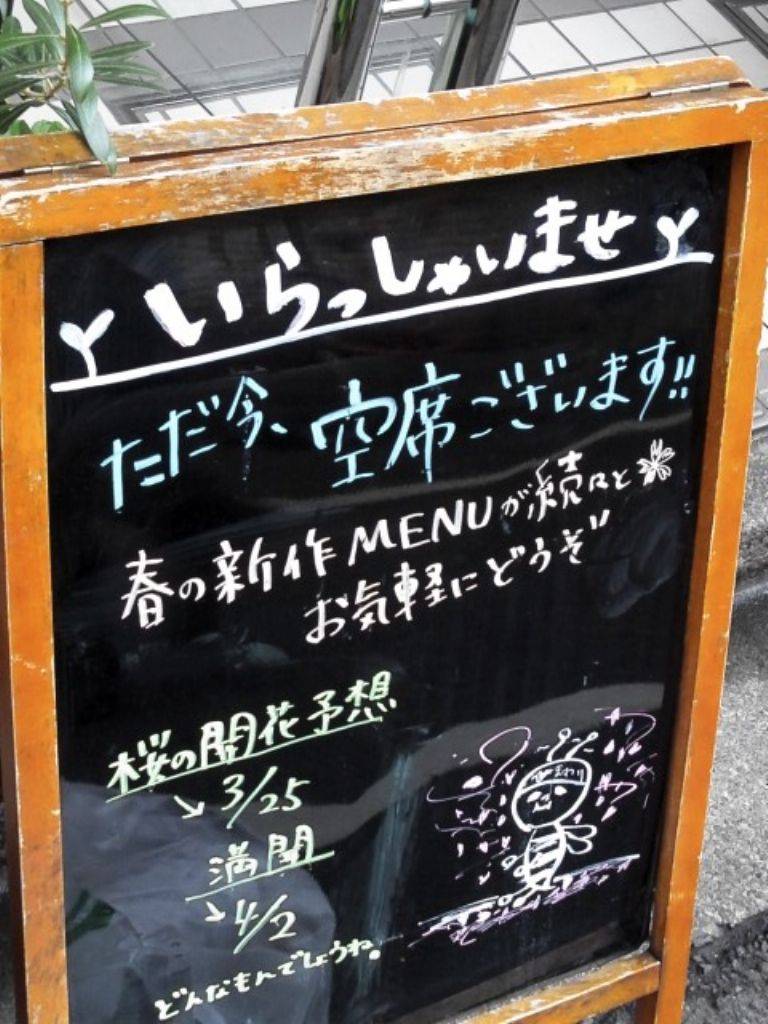 いらっしゃいませ
ただ今、空席ございます!!
春の新作MENUが続々と
お気軽にどうぞ
桜の開花予想
→3/25
満開
→4/2
どんなもんでしょうね。